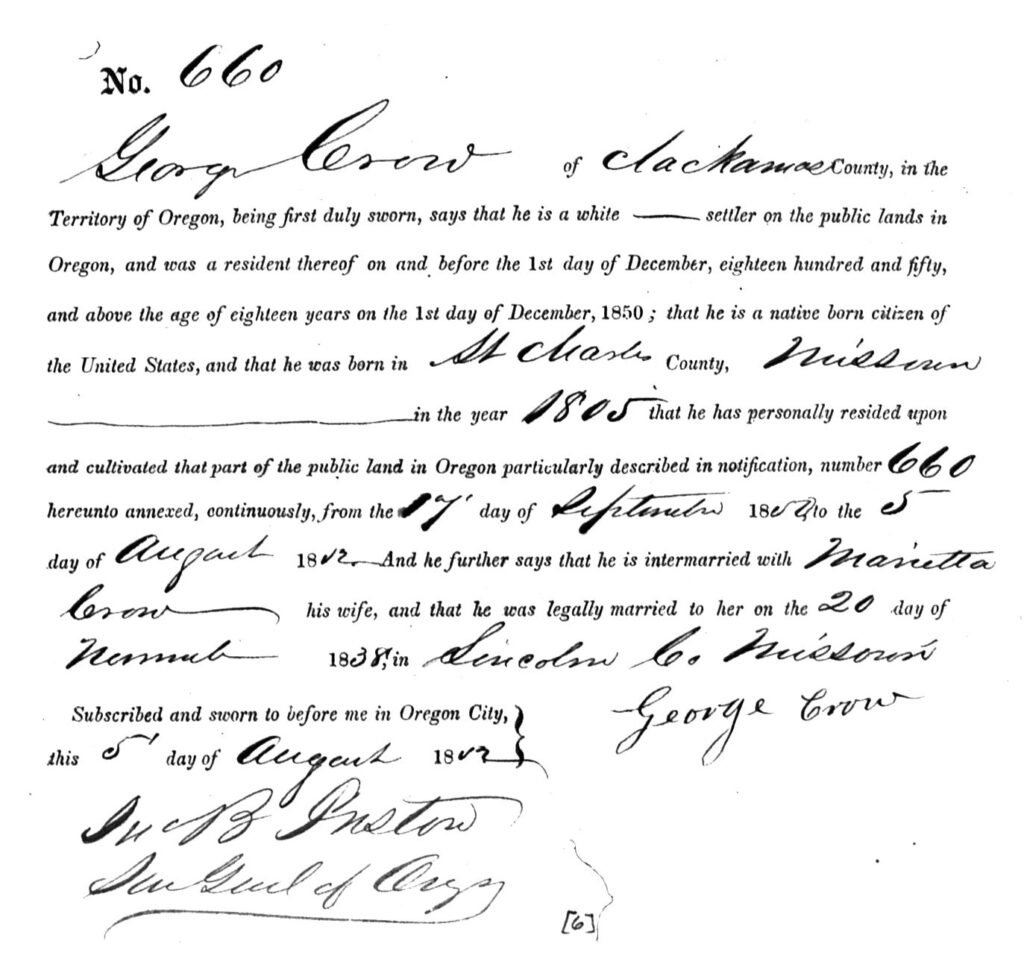 No. 660
George Crow of Clackamas County, in the
Territory of Oregon, being first duly sworn, says that he is a white settler on the public lands in
Oregon, and was a resident thereof on and before the 1st day of December, eighteen hundred and fifty,
and above the age of eighteen years on the 1st day of December, 1850; that he is a native born citizen of
the United States, and that he was born in St Charles County, Missouri
in the year 1805 that he has personally resided upon
and cultivated that part of the public land in Oregon particularly described in notification, number 660
hereunto annexed, continuously, from the 17 day of September 1850, to the 5
day of August 1852. And he further says that he is intermarried with Marietta
Crow his wife, and that he was legally married to her on the 20 day of
1838, in Lincoln Co. Missouri
George Crow
Subscribed and sworn to before me in Oregon City,
this 5 day of August 1852
Jno B Preston
Sur Genl of Oregn
[6]